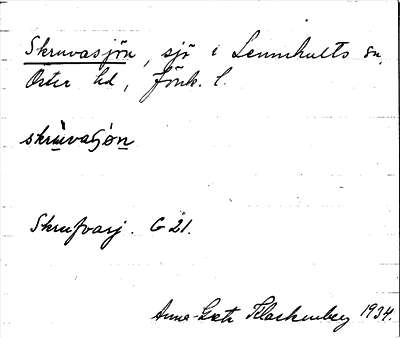 Skruvasjön, sjö i Lemnhults sn,
Öster hd, Jönk. l.
skrùvasjön
Skrufvasj. G 21.
Anna-Greta Klackenberg 1934.